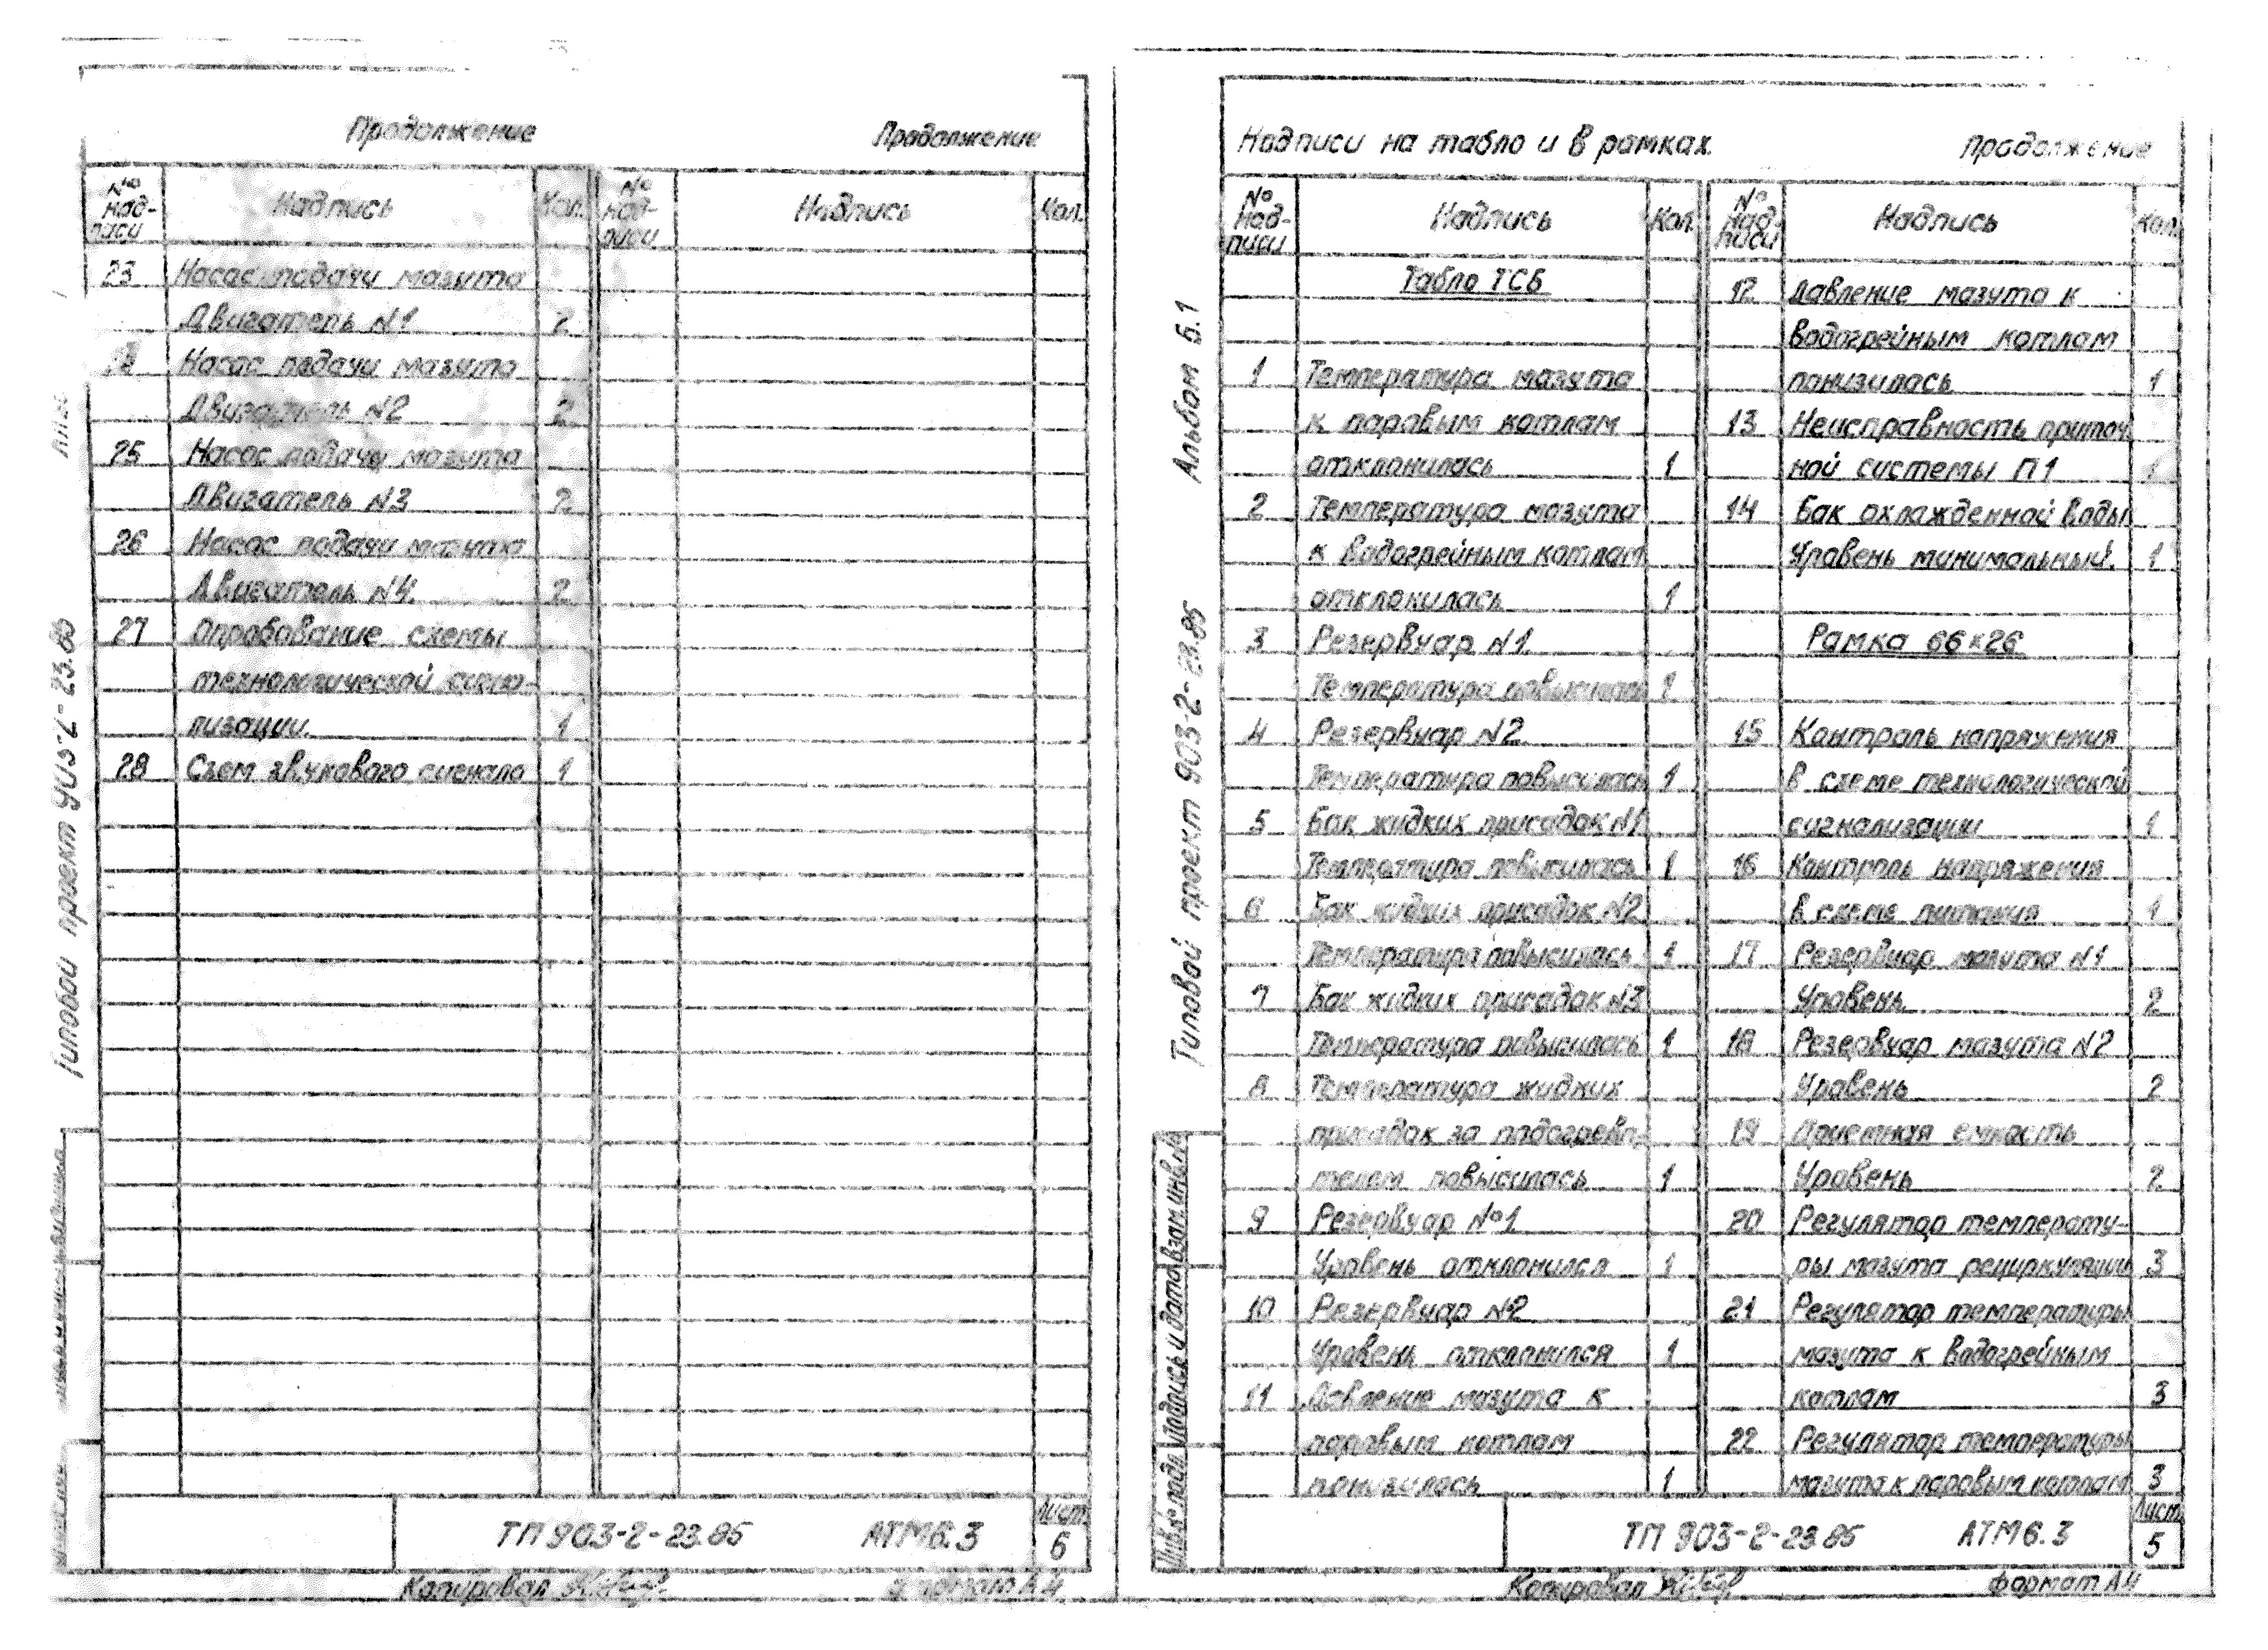 Продолжение
Продолжение
№ над- писи
Надпись
Кол.
№ над- писи
Надпись
Кол.
23 Насос подачи мазута
Двигатель N1 2
Насос подачи мазута
Двигатель N2 2
25 Насос подачи мазута
Двигатель N3 2
26 Насос подачи мазута
Двигатель N4. 2
27 Опробование схемы
технологической сигна-
лизации. 1
28 Съем звукового сигнала 1
Типовой проект 903-2-23.85
ТП 903-2-23.85 АТМ6.3
Лист
6
Копировал
Формат А4
Надписи на табло и в рамках
Продолжение
№ над- писи
Надпись
Кол.
№ над- писи
Надпись
Кол.
Табло ТСБ
1 Температура мазута
к паровым котлам
отклонилась 1
2 Температура мазута
к водогрейным котлам
отклонилась 1
3 Резервуар N1.
Температура повысилась 1
4 Резервуар N2
Температура повысилась 1
5 Бак жидких присадок N1
Температура повысилась 1
6 Бак жидких присадок N2
Температура повысилась 1
7 Бак жидких присадок N3
Температура повысилась 1
8 Температура жидких
присадок за подогрева-
телем повысилась 1
9 Резервуар №1
Уровень отклонился 1
10 Резервуар №2
Уровень отклонился 1
11 Давление мазута к
паровым котлам
понизилось 1
12 Давление мазута к
водогрейным котлам
понизилась 1
13 Неисправность приточ
ной системы П1 1
14 Бак охлажденной воды
Уровень минимальный. 1
Рамка 66×26
15 Контроль напряжения
в схеме технологической
сигнализации 1
16 Контроль напряжения
в схеме питания 1
17 Резервуар мазута N1
Уровень 2
18 Резервуар мазута N2
Уровень 2
19 Приемная емкость
Уровень 2
20 Регулятор температу-
ры мазута рециркуляции 3
21 Регулятор температуры
мазута к водогрейным
котлам 3
22 Регулятор температуры
мазута к паровым котлам 3
Альбом 6.1
Типовой проект 903-2-23.85
Взам.инв.№
Подпись и дата
Инв.№ подл.
ТП 903-2-23.85 АТМ6.3
Лист
5
Копировал
Формат А4